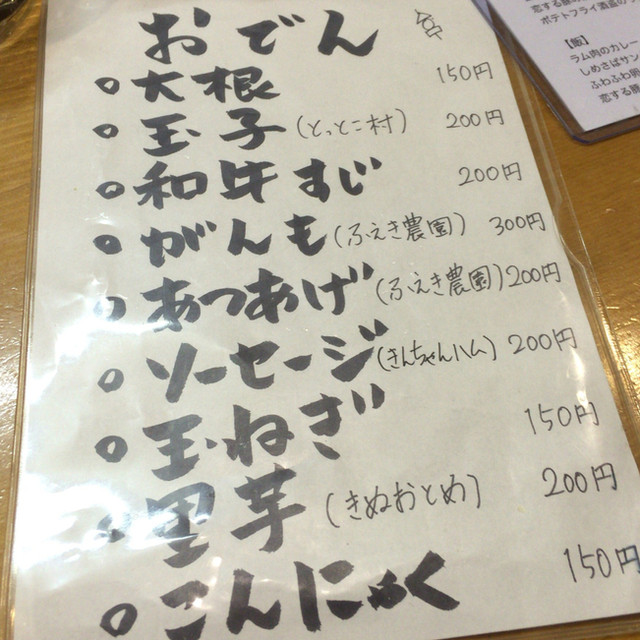 おでん
○大根 150円
○玉子(とっとこ村) 200円
○和牛すじ 200円
○がんも(ふえき農園) 300円
○あつあげ(ふえき農園) 200円
○ソーセージ(きんちゃんハム) 200円
○玉ねぎ 150円
○里芋(きぬおとめ) 200円
○こんにゃく 150円
ポテトフライ
ラム肉のカレー
しめさばサン
ふわふわ